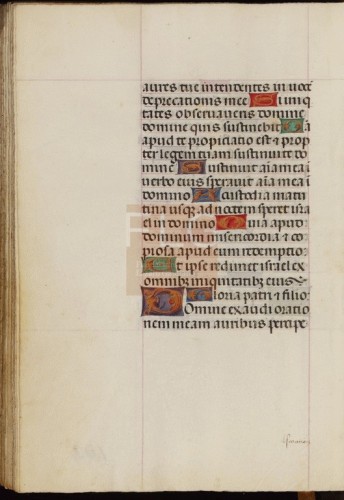 aures tue intendentes in uocē
deprecationis mee Si iniq
tates obseruaueris domine
domine quis sustinebit Quia
apud te propiciatio est et prop
ter legem tuam sustinui te do
mine Sustinuit aīa mea ī
uerbo eius sperauit aīa mea ī
domino A custodia matu
tina usq ad noctem speret isra
el in domino Quia apud
dominum misericordia et co
piosa apud eum redemptio
Et ipse redimet israel ex
omnibꝫ iniquitatibꝫ eius
Gloria patri et filio
Domine exaudi oratio
nem meam auribus percipe